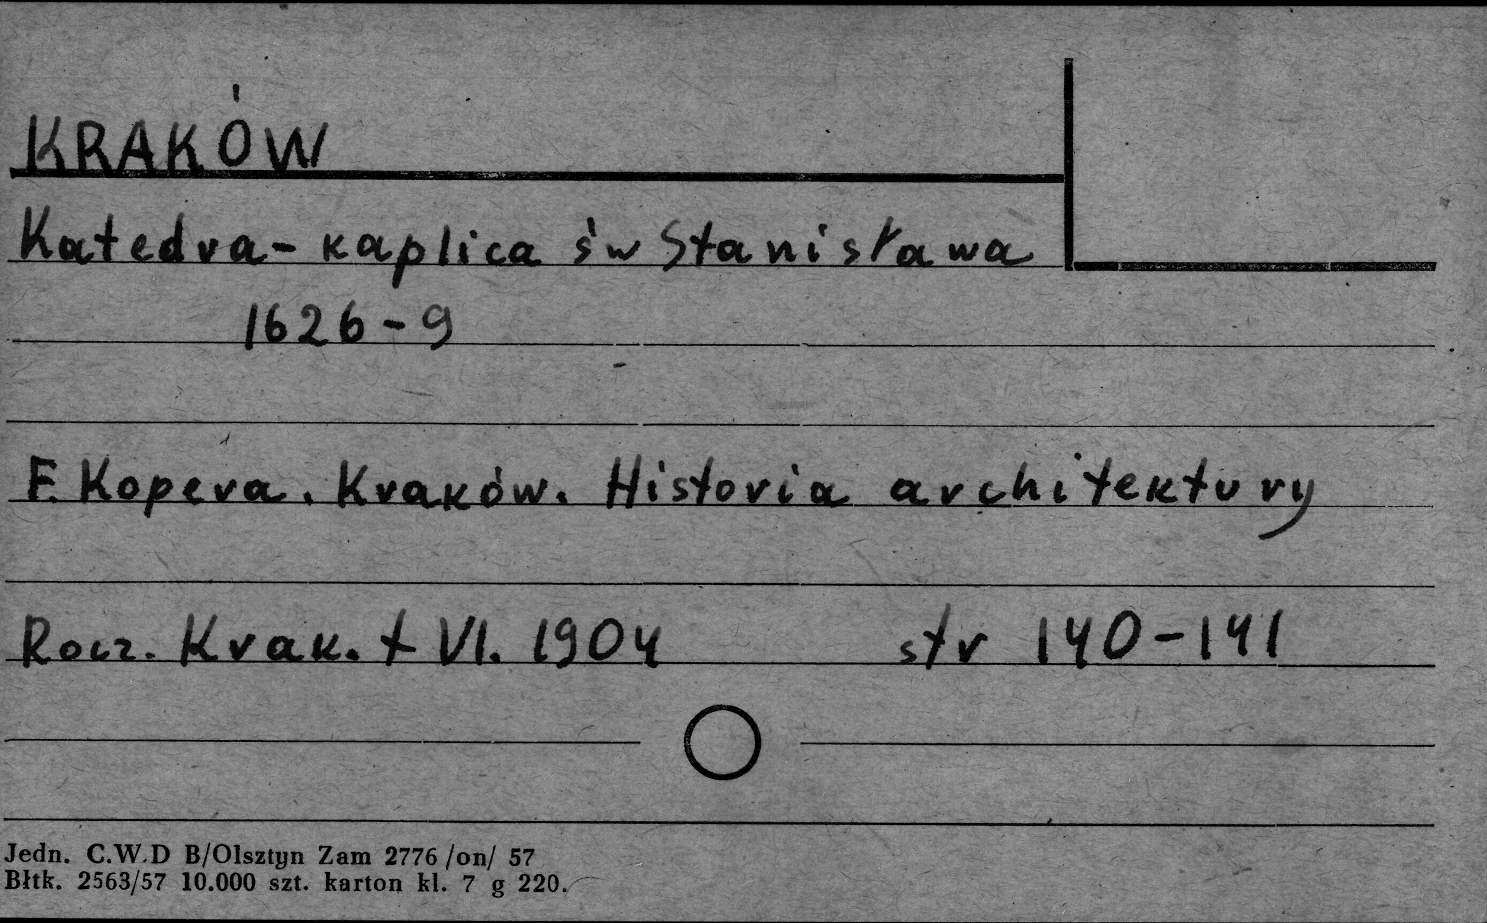 KRAKÓW
Katedra - kaplica św Stanisława
1626-9
F. Kopera. Kraków. Historia architektury
Rocz. Krak. t VI. 1904 str 140-141
Jedn. C.W.D B/Olsztyn Zam 2776 /on/ 57
Błtk. 2563/57 10.000 szt. karton kl. 7 g 220.